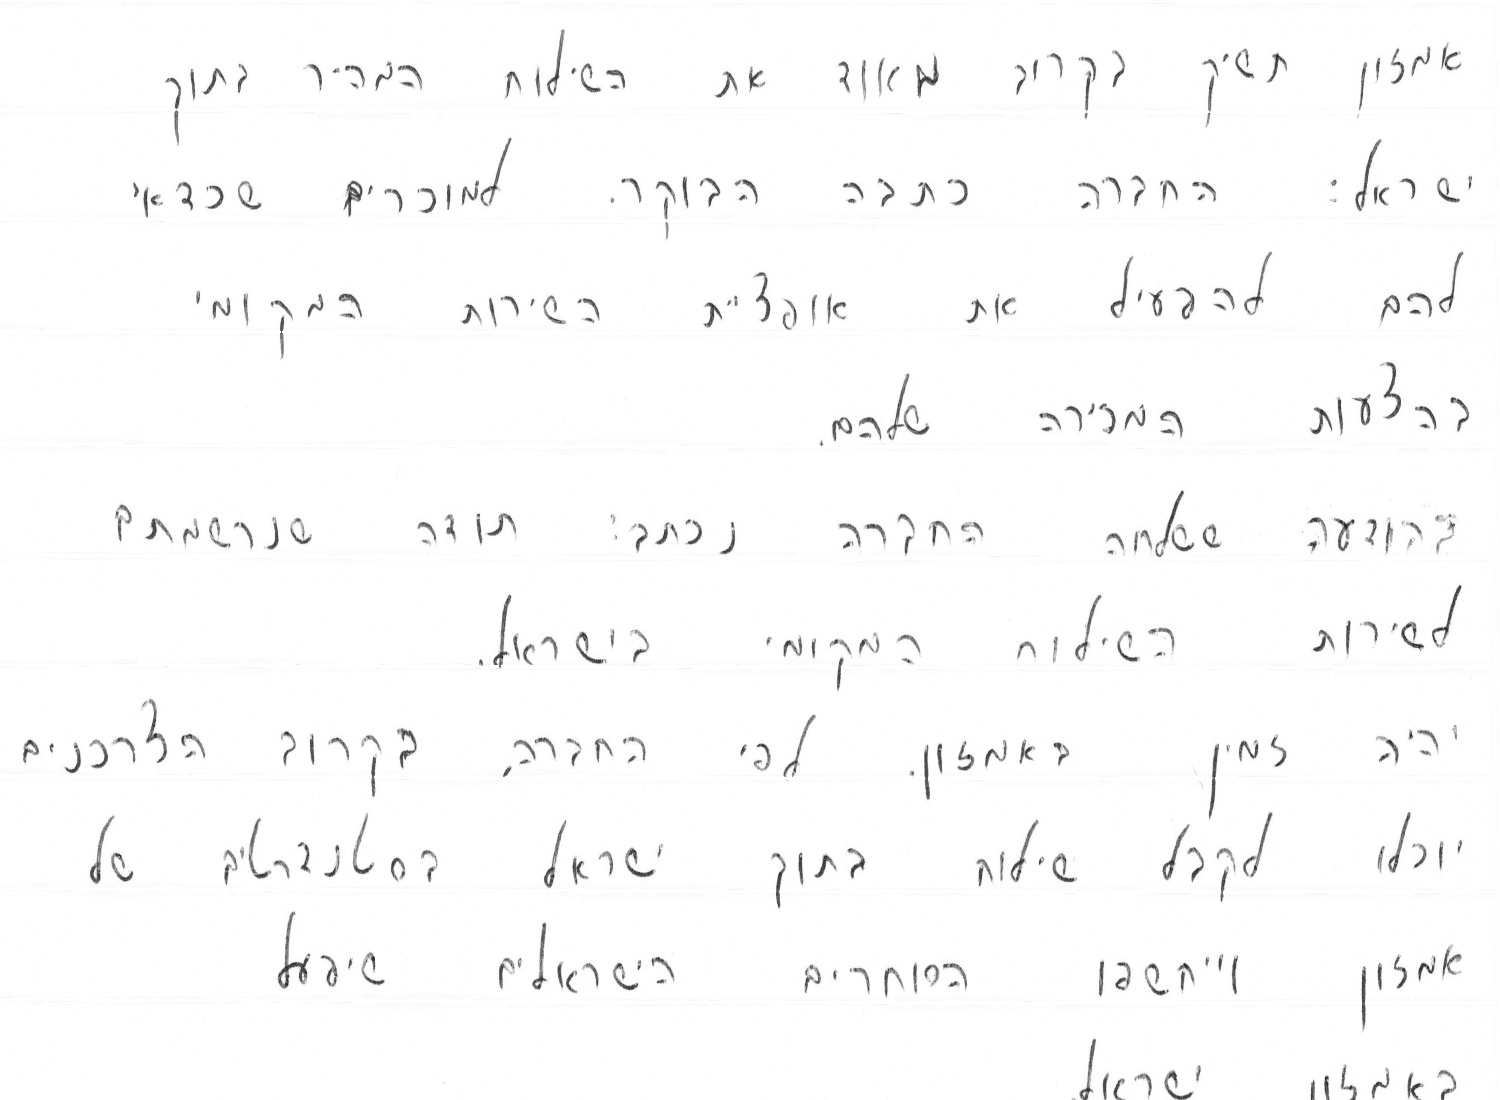 אמזון תשיק בקרוב מאוד את השילוח המהיר בתוך
ישראל: החברה כתבה הבוקר. למוכרים שכדאי
להם להפעיל את אופציית השירות המקומי
בהצעות המכירה שלהם.
בהודעה ששלחה החברה נכתב: תודה שנרשמתם
לשירות השילוח המקומי בישראל.
יהיה זמין באמזון. לפי החברה, בקרוב הצרכנים
יוכלו לקבל שילוח בתוך ישראל בסטנדרטים של
אמזון וייחשפו הסוחרים הישראלים שיפעל
באמזון ישראל